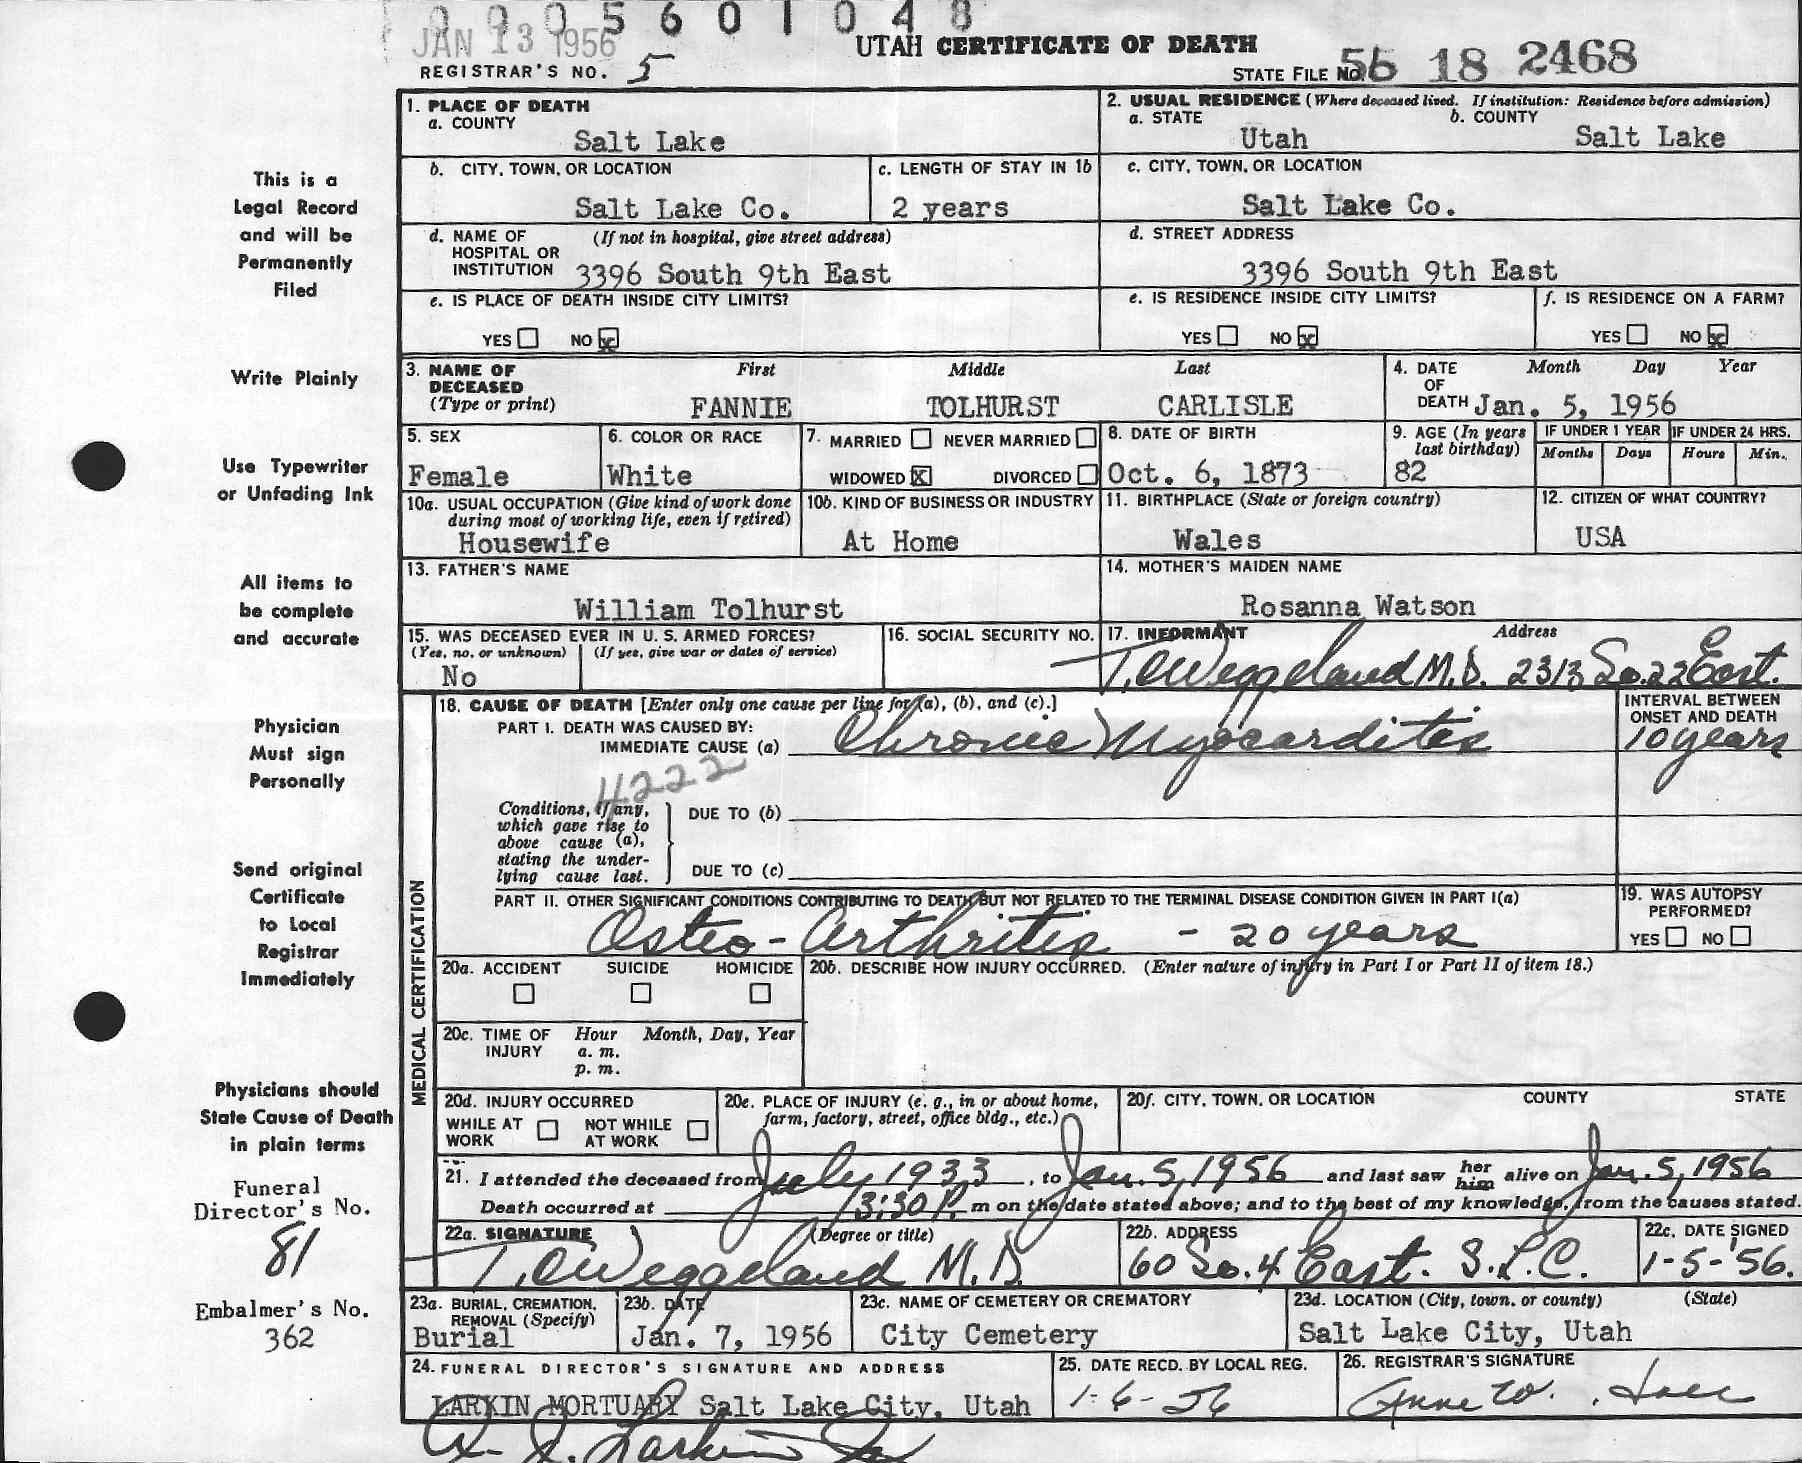 0005601048
JAN 13 1956
UTAH CERTIFICATE OF DEATH
REGISTRAR'S NO. 5
STATE FILE NO. 56 18 2468
This is a
Legal Record
and will be
Permanently
Filed
Write Plainly
Use Typewriter
or Unfading Ink
All items to
be complete
and accurate
Physician
Must sign
Personally
Send original
Certificate
to Local
Registrar
Immediately
Physicians should
State Cause of Death
in plain terms
Funeral
Director's No.
81
Embalmer's No.
362
1. PLACE OF DEATH
a. COUNTY
Salt Lake
2. USUAL RESIDENCE (Where deceased lived. If institution: Residence before admission)
a. STATE b. COUNTY
Utah Salt Lake
b. CITY, TOWN, OR LOCATION
Salt Lake Co.
c. LENGTH OF STAY IN 1b
2 years
c. CITY, TOWN, OR LOCATION
Salt Lake Co.
d. NAME OF (If not in hospital, give street address)
HOSPITAL OR
INSTITUTION 3396 South 9th East
d. STREET ADDRESS
3396 South 9th East
e. IS PLACE OF DEATH INSIDE CITY LIMITS?
YES NO x
e. IS RESIDENCE INSIDE CITY LIMITS?
YES NO x
f. IS RESIDENCE ON A FARM?
YES NO x
3. NAME OF First Middle Last
DECEASED
(Type or print) FANNIE TOLHURST CARLISLE
4. DATE Month Day Year
OF
DEATH Jan. 5, 1956
5. SEX
Female
6. COLOR OR RACE
White
7. MARRIED NEVER MARRIED
WIDOWED x DIVORCED
8. DATE OF BIRTH
Oct. 6, 1873
9. AGE (In years
last birthday)
82
IF UNDER 1 YEAR IF UNDER 24 HRS.
Months Days Hours Min.
10a. USUAL OCCUPATION (Give kind of work done
during most of working life, even if retired)
Housewife
10b. KIND OF BUSINESS OR INDUSTRY
At Home
11. BIRTHPLACE (State or foreign country)
Wales
12. CITIZEN OF WHAT COUNTRY?
USA
13. FATHER'S NAME
William Tolhurst
14. MOTHER'S MAIDEN NAME
Rosanna Watson
15. WAS DECEASED EVER IN U. S. ARMED FORCES?
(Yes, no, or unknown) (If yes, give war or dates of service)
No
16. SOCIAL SECURITY NO.
17. INFORMANT Address
T.C. Weggeland M.D. 2313 So. 22 East.
MEDICAL CERTIFICATION
18. CAUSE OF DEATH [Enter only one cause per line for (a), (b), and (c).]
INTERVAL BETWEEN
ONSET AND DEATH
PART I. DEATH WAS CAUSED BY:
IMMEDIATE CAUSE (a) Chronic Myocarditis 10 years
4222
Conditions, if any,
which gave rise to
above cause (a),
stating the under-
lying cause last.
DUE TO (b)
DUE TO (c)
PART II. OTHER SIGNIFICANT CONDITIONS CONTRIBUTING TO DEATH BUT NOT RELATED TO THE TERMINAL DISEASE CONDITION GIVEN IN PART I(a)
Osteo-Arthritis - 20 years
19. WAS AUTOPSY
PERFORMED?
YES NO
20a. ACCIDENT SUICIDE HOMICIDE
20b. DESCRIBE HOW INJURY OCCURRED. (Enter nature of injury in Part I or Part II of item 18.)
20c. TIME OF Hour Month, Day, Year
INJURY a. m.
p. m.
20d. INJURY OCCURRED
WHILE AT NOT WHILE
WORK AT WORK
20e. PLACE OF INJURY (e. g., in or about home,
farm, factory, street, office bldg., etc.)
20f. CITY, TOWN, OR LOCATION COUNTY STATE
21. I attended the deceased from July 1933, to Jan. 5, 1956 and last saw her him alive on Jan. 5, 1956
Death occurred at 3:30 P. m on the date stated above; and to the best of my knowledge, from the causes stated.
22a. SIGNATURE (Degree or title)
T.C. Weggeland M.D.
22b. ADDRESS
60 So. 4 East. S.L.C.
22c. DATE SIGNED
1-5-'56.
23a. BURIAL, CREMATION,
REMOVAL (Specify)
Burial
23b. DATE
Jan. 7, 1956
23c. NAME OF CEMETERY OR CREMATORY
City Cemetery
23d. LOCATION (City, town, or county) (State)
Salt Lake City, Utah
24. FUNERAL DIRECTOR'S SIGNATURE AND ADDRESS
LARKIN MORTUARY Salt Lake City, Utah
25. DATE RECD. BY LOCAL REG.
1-6-56
26. REGISTRAR'S SIGNATURE
Anne W.
Larkin